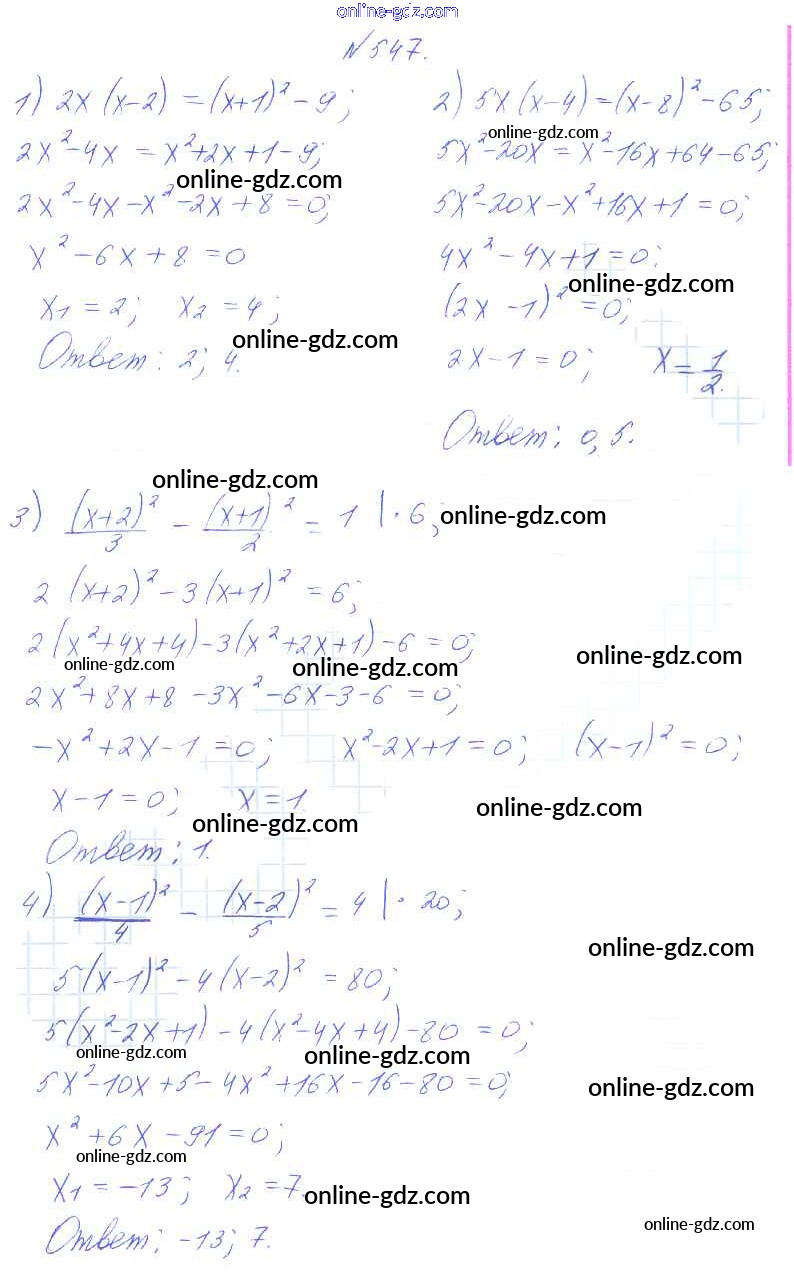 online-gdz.com
№547.
1) 2x(x-2) = (x+1)² - 9;
2x² - 4x = x² + 2x + 1 - 9;
online-gdz.com
2x² - 4x - x² - 2x + 8 = 0;
x² - 6x + 8 = 0
x₁ = 2; x₂ = 4;
online-gdz.com
Ответ: 2; 4.
2) 5x(x-4) = (x-8)² - 65;
online-gdz.com
5x² - 20x = x² - 16x + 64 - 65;
5x² - 20x - x² + 16x + 1 = 0;
4x² - 4x + 1 = 0;
online-gdz.com
(2x - 1)² = 0;
2x - 1 = 0; x = 1/2.
Ответ: 0,5.
online-gdz.com
3) (x+2)²/3 - (x+1)²/2 = 1 | · 6;
online-gdz.com
2(x+2)² - 3(x+1)² = 6;
2(x² + 4x + 4) - 3(x² + 2x + 1) - 6 = 0;
online-gdz.com
online-gdz.com
online-gdz.com
2x² + 8x + 8 - 3x² - 6x - 3 - 6 = 0;
-x² + 2x - 1 = 0; x² - 2x + 1 = 0; (x-1)² = 0;
x - 1 = 0; x = 1.
online-gdz.com
online-gdz.com
Ответ: 1.
4) (x-1)²/4 - (x-2)²/5 = 4 | · 20;
online-gdz.com
5(x-1)² - 4(x-2)² = 80;
5(x² - 2x + 1) - 4(x² - 4x + 4) - 80 = 0;
online-gdz.com
online-gdz.com
5x² - 10x + 5 - 4x² + 16x - 16 - 80 = 0;
online-gdz.com
x² + 6x - 91 = 0;
online-gdz.com
x₁ = -13; x₂ = 7.
online-gdz.com
Ответ: -13; 7.
online-gdz.com